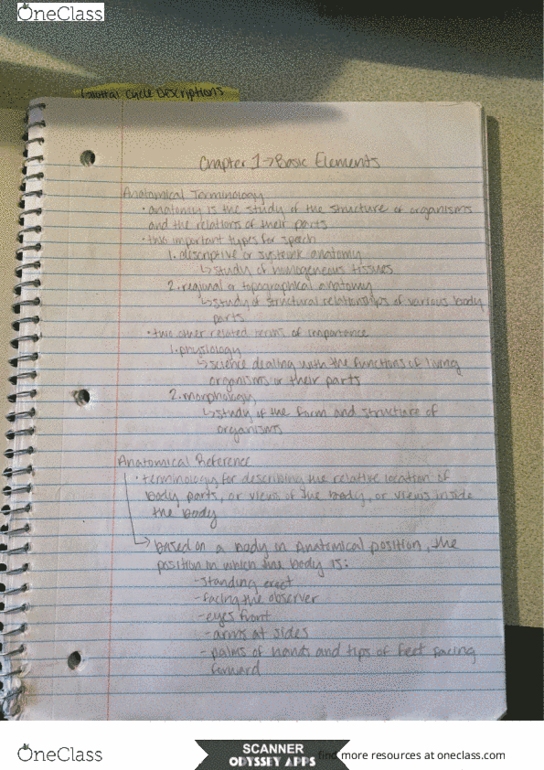 OneClass
Glottal Cycle Descriptions
Chapter 1→Basic Elements
Anatomical Terminology
• anatomy is the study of the structure of organisms
and the relations of their parts
• two important types for speech
1. descriptive or systemic anatomy
↳ study of homogeneous tissues
2. regional or topographical anatomy
↳ study of structural relationships of various body
parts
• two other related terms of importance
1. physiology
↳ science dealing with the functions of living
organisms or their parts
2. morphology
↳ study of the form and structure of
organisms
Anatomical Reference
• terminology for describing the relative location of
body parts, or views of the body, or views inside
the body
→ based on a body in anatomical position, the
position in which the body is:
- standing erect
- facing the observer
- eyes front
- arms at sides
- palms of hands and tips of feet facing
forward
OneClass
SCANNER
ODYSSEY APPS
find more resources at oneclass.com